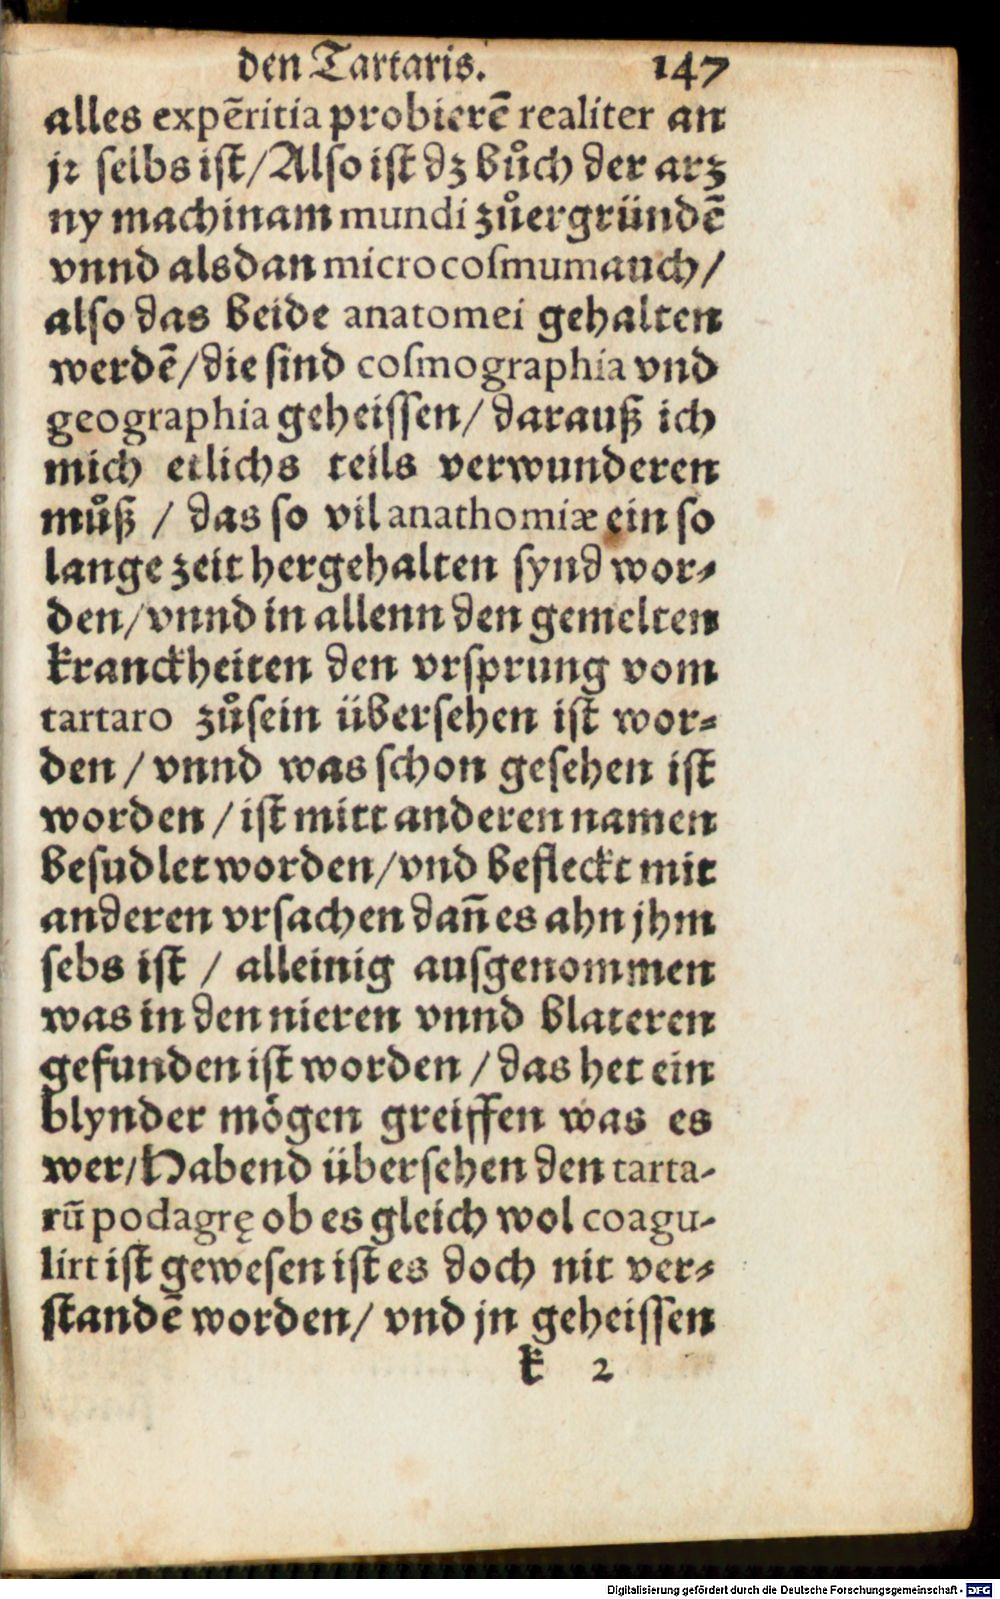 den Tartaris. 147
alles expēritia probierē realiter an
jr selbs ist/Also ist dz bůch der arz
ny machinam mundi zůergründē
vnnd alsdan microcosmumauch/
also das beide anatomei gehalten
werdē/die sind cosmographia vnd
geographia geheissen/darauß ich
mich etlichs teils verwunderen
můß / das so vil anathomiæ ein so
lange zeit hergehalten synd wor⸗
den/vnnd in allenn den gemelten
kranckheiten den vrsprung vom
tartaro zůsein übersehen ist wor⸗
den / vnnd was schon gesehen ist
worden / ist mitt anderen namen
besudlet worden/vnd befleckt mit
anderen vrsachen dañ es ahn jhm
sebs ist / alleinig ausgenommen
was in den nieren vnnd blateren
gefunden ist worden / das het ein
blynder mögen greiffen was es
wer/Habend übersehen den tarta-
rū podagrę ob es gleich wol coagu-
lirt ist gewesen ist es doch nit ver⸗
standē worden/ vnd jn geheissen
k 2
Digitalisierung gefördert durch die Deutsche Forschungsgemeinschaft - DFG